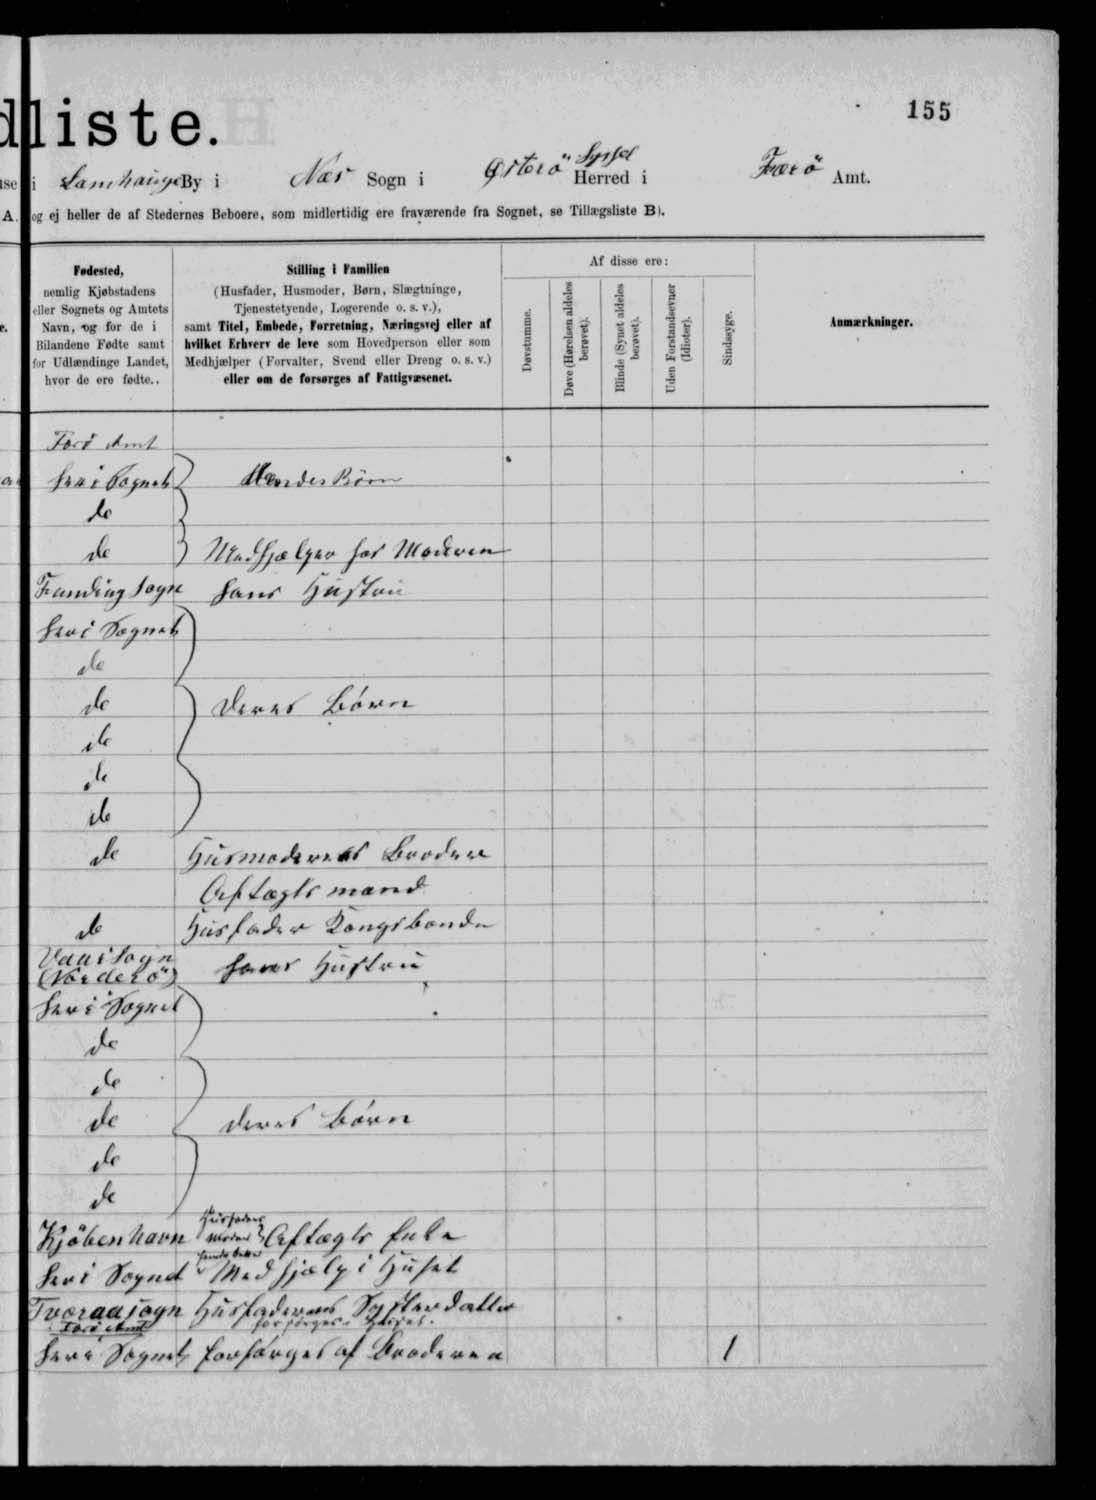 dliste.
155
use i Lamhauge By i Næs Sogn i Østerö Syssel Herred i Færö Amt.
A. og ej heller de af Stedernes Beboere, som midlertidig ere fraværende fra Sognet, se Tillægsliste B).
Fødested,
nemlig Kjøbstadens
eller Sognets og Amtets
Navn, og for de i
Bilandene Fødte samt
for Udlændinge Landet,
hvor de ere fødte..
Stilling i Familien
(Husfader, Husmoder, Børn, Slægtninge,
Tjenestetyende, Logerende o. s. v.),
samt Titel, Embede, Forretning, Næringsvej eller af
hvilket Erhverv de leve som Hovedperson eller som
Medhjælper (Forvalter, Svend eller Dreng o. s. v.)
eller om de forsørges af Fattigvæsenet.
Af disse ere:
Døvstumme.
Døve (Hørelsen aldeles
berøvet).
Blinde (Synet aldeles
berøvet).
Uden Forstandsevner
(Idioter).
Sindssyge.
Anmærkninger.
Færö Amt
her i Sognet Hendes Börn
de
de Medhjælper hos Moderen
Funding Sogn hans Hustru
her i Sognet
de
de deres Börn
de
de
de
de Husmoderens Broder
Aftægtsmand
de Husfader Kongsbonde
Vaai Sogn
(Norderö) hans Hustru
her i Sognet
de
de
de deres Börn
de
de
Kjöbenhavn Husfaders Moder Aftægts Enke
her i Sognet Medhjælp i Huset
Tværaa sogn Husfaderens Søsterdatter
Færö Amt forsørges i Huset.
her i Sognet forsørges af Broderen 1